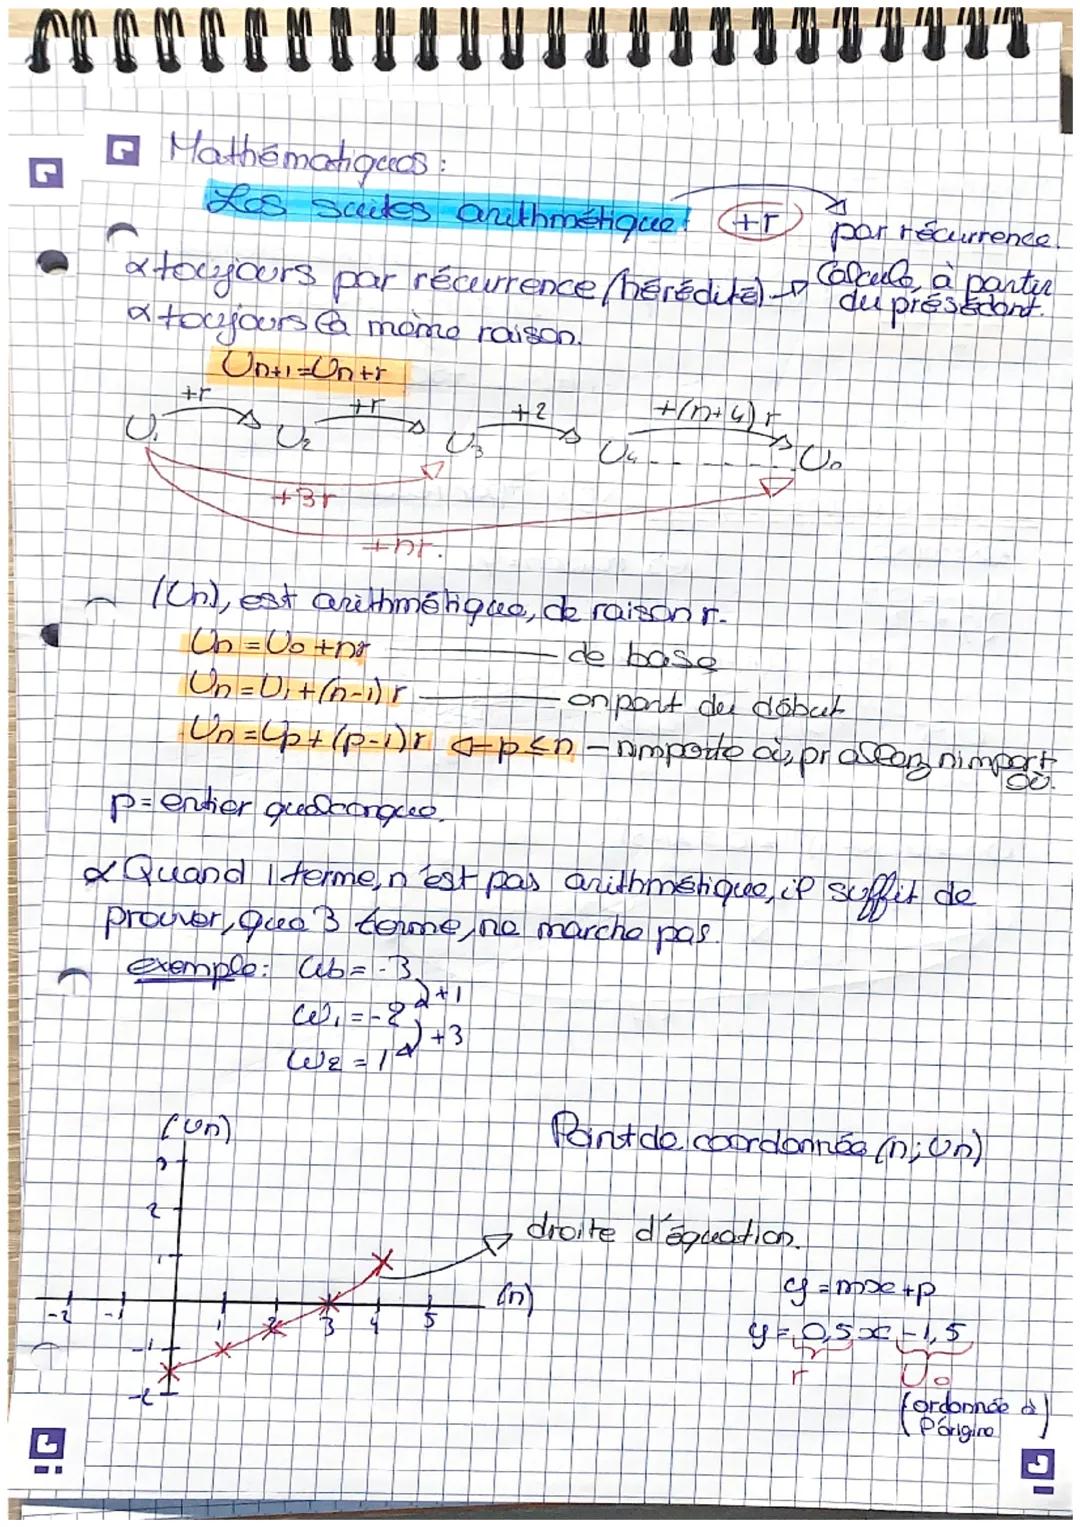 Mathématiques :
Les suites arithmétique! +r
par récurrence.
αtoujours par récurrence (hérédité) → Calcule, à partir
du présédant.
αtoujours la même raison.
Un+1=Un+r
+r +r +2 +(n+4)r
U1 U2 U3 U4 - - - - Un
+3r
+nr.
(Un), est arithmétique, de raison r.
Un = U0 + nr ——— de base
Un = U1 + (n-1) r ——— on part du début
Un = Up + (p-1) r ← p ≤ n – nimporte où, pr allerz nimport
où.
p = entier quelconque.
α Quand 1 terme, n'est pas arithmétique, il suffit de
prouver, que 3 terme, ne marche pas.
exemple: W0 = -3
+1
W1 = -2
+3
W2 = 1
(Un)
Point de coordonnée (n; Un)
3
2
droite d'équation.
1
y = mx + p
-2 -1 1 2 3 4 5 (n)
y = 0,5x - 1,5
-1
r U0
-2
(ordonnée à
l'origine)